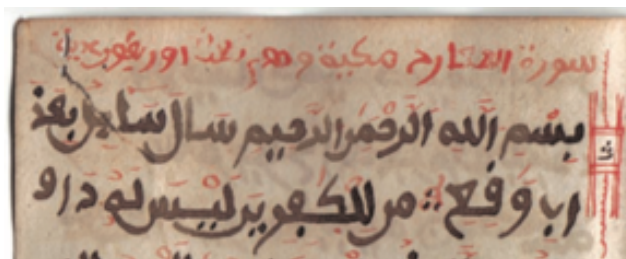 سورة المعارج مكية وهي
بسم الله الرحمن الرحيم سال سايل بعذ
اب وفع من للكفرين ليس له دا و